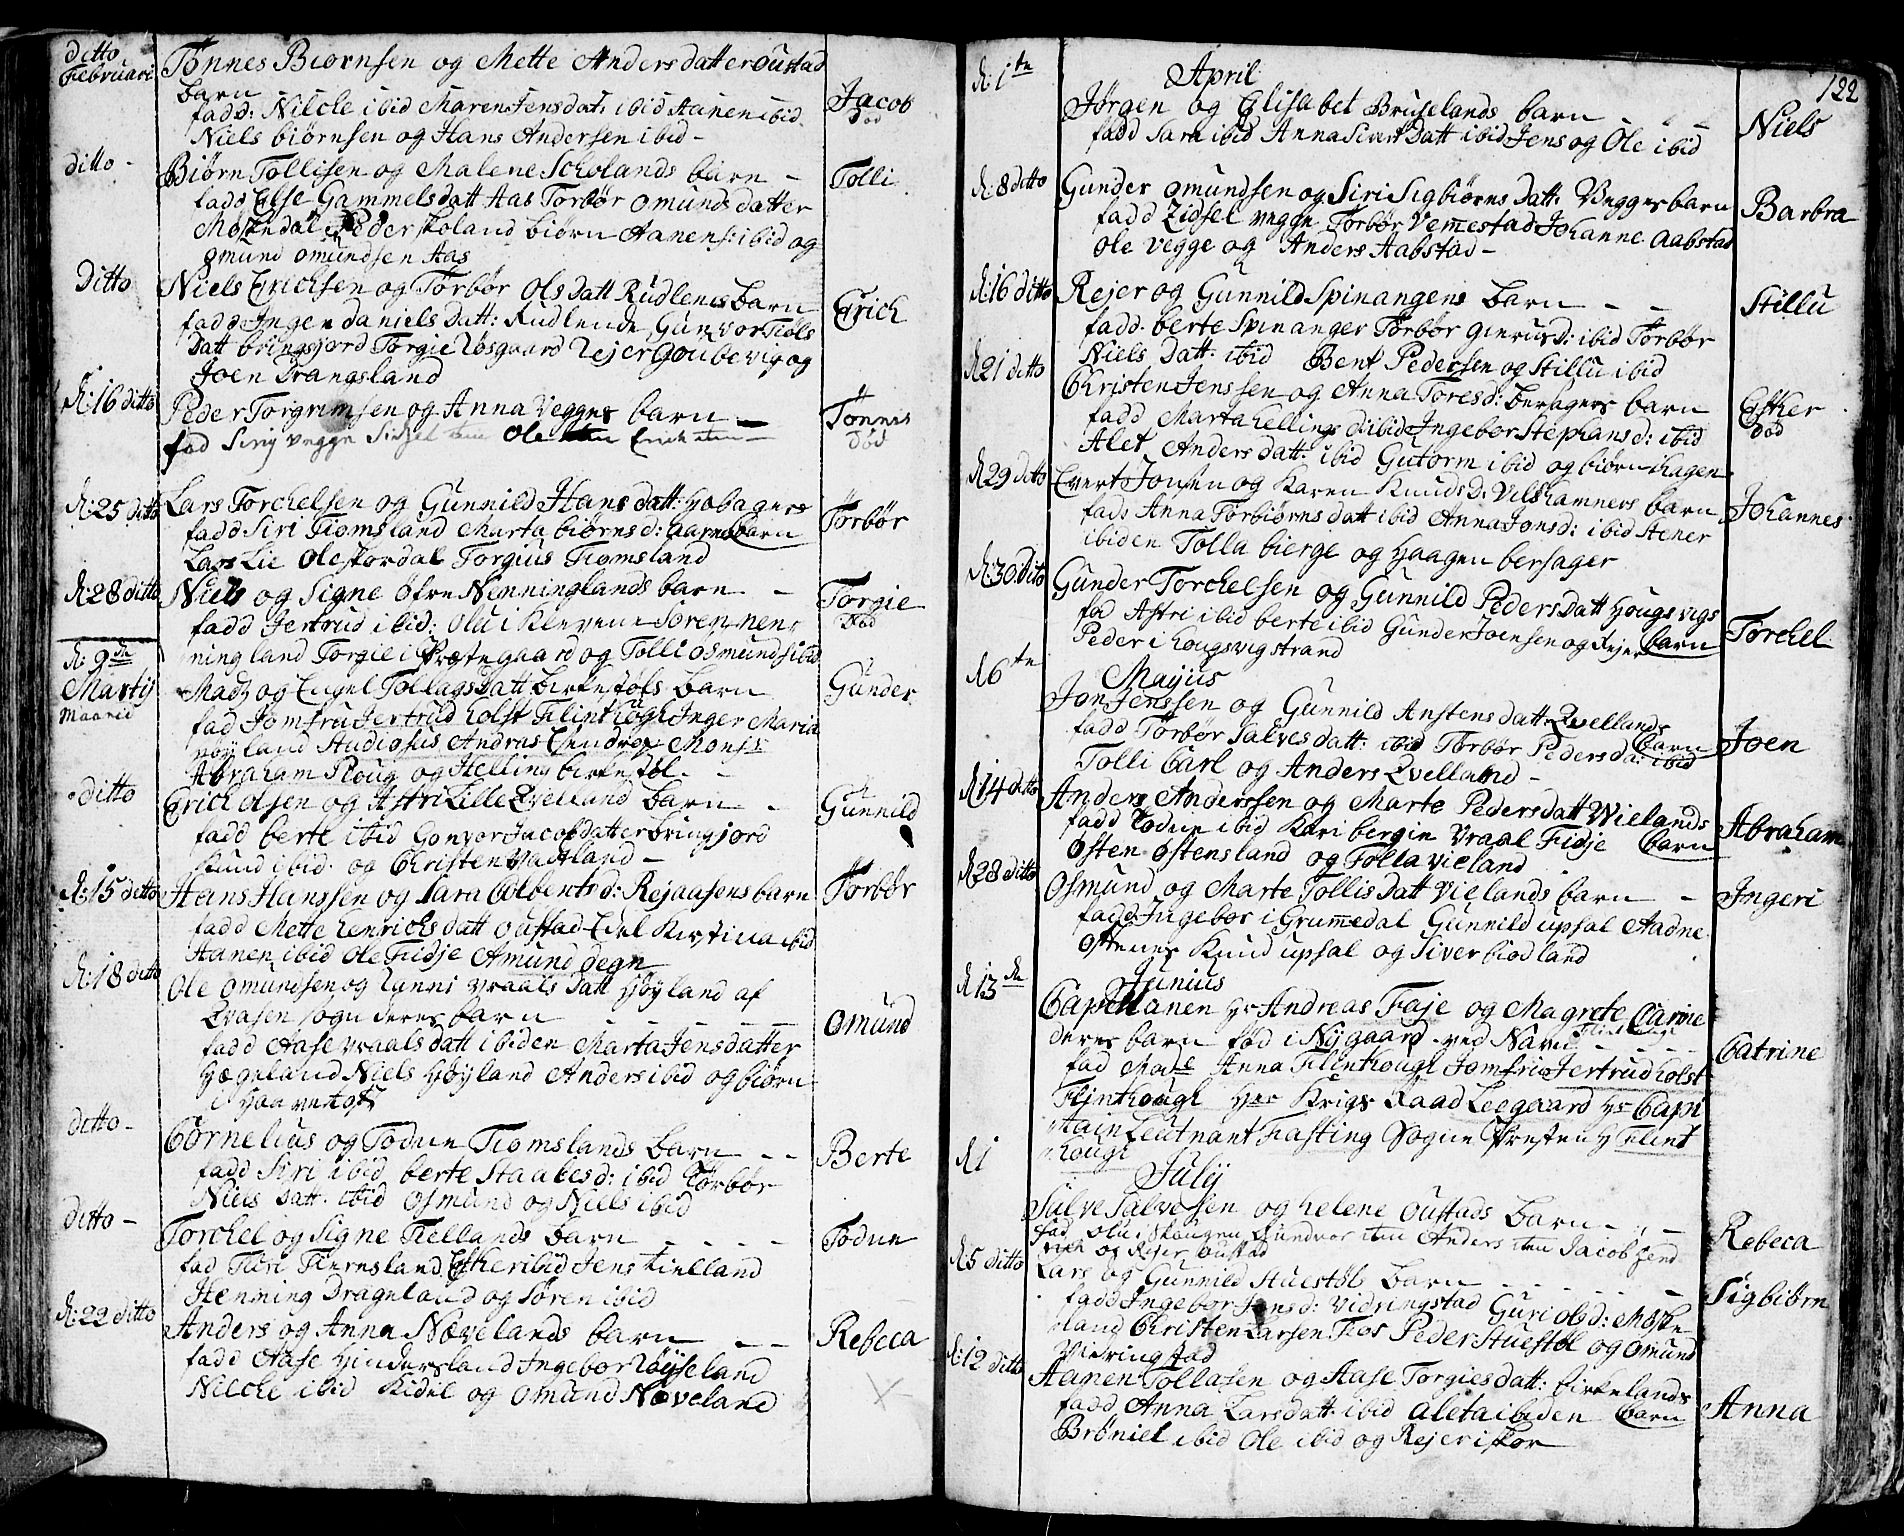 ditto
Februari
Tønnes Biørnsen og Mette Andersdatter oustad
barn
fadd: Nilche ibid Maren Jensdat: ibid Aanen ibid
Niels biørnsen og Hans Andersen ibid -
Jacob
død
ditto -
Biørn Tollisen og Malene Scholands barn -
fadd Else Gammelsdatt Aas Torbør omunds datter
Møsendal Peder skoland biørn Aanens: ibid og
omund omundsen Aas
Tolli
Ditto
Niels Erichsen og Torbør Olsdatt Rudlenes barn
fadd Ingen daniels datt: Rudlende Gunvor Tiøls
datt bringsjord Torgie Røsgaard Rejer Goubevig og
Joen Trangsland
Erich
d: 16 ditto
Peder Torgrimsen og Anna Vegges barn -
fad Siri vegge Sidsel item Ole item Erich item -
Tønnes
død
d: 25 ditto
Lars Torchelsen og Gunnild Hans datt: Hobagers
fadd Siri Tiomsland Marta biørnsd: aarne barn
Lars Lie Ole stordal Torgius Tiomsland
Torbør
d: 28 ditto
Niels og Signe øfre Nenninglands barn -
fadd Jertrud ibid: olu i Klevene Søren nen,
ningland Torgie i Præstegaard og Tolli osmunds ibid
Torgie
død
d: 9de
Martij
Maaned
Madz og Engel Tollagsdatt birkestøls barn
fad Jomfru Jertrud holst Flinthough Inger Maria
nøyland Studiosus Andras Monsr
Abraham Ploug og Helling birkestøl -
Gunder
ditto
Erich olsen og Astri Lille Qvelland barn -
fadd berte ibid Gonvor Jacobdatter bringjord
ibid og Christen Vaatland -
Gunnild
d: 15 ditto
Hans Hanssen og Sara Colbentsd: Rejaasens barn
fadd Mette henrichsdatt oustad Edel Kirstina ibid
Aanen ibid Ole Fidje Amund degn
Torbør
d: 18 ditto
Ole omundsen og Tanni vraals datt Høyland af
Qvasen sogn deres barn
fadd Aase vraals datt ibiden Marta Jensdatter
Hægeland Niels Høyland Anders ibid og biørn
i Haavertgst
Omund
ditto -
Cornelius og Todne Tiomslands barn - -
fadd Siri ibid berte Staalesd: ibid Torbør
Niels datt. ibid osmund og Niels ibid
Berte
ditto -
Torchel og Signe Tiellands barn
fad Tiri Tiernsland Esther ibid Jens tielland
Henning Dragneland og Søren ibid
Todne
d: 22 ditto
Anders og Anna Nøvelands barn
fadd Aase Hindersland Ingebor Røyseland
Nilche ibid Kidil og omund Nøveland
Rebeca
122
d: 1te
April
Jørgen og Elisabet Bruselands barn
fadd Sara ibid Anna Sivert Datt ibid Jens og Ole ibid
Niels
d: 8 ditto
Gunder omundsen og Siri Sigbiørns datt. Vegges barn
fadd Zidsel vegge Torbør Vemestad Johanne aabstad
Ole vegge og Anders Aabstad -
Barbra
d: 16 ditto
Rejer og Gunnild Spinangens barn
fadd. berte Spinanger Torbør ginrusd: ibid Torbør
Niels datt. ibid Bent Pedersen og Stillu ibid
Stillu
d 21 ditto
Christen Jenssen og Anna Toresd: bersagers barn
fadd Marta hellings d: ibid Ingebor Stephansd: ibid
Alet Anders datt: ibid Gutorm ibid og biørn ihagen
Esther
død
d 29 ditto
Evert Jonsen og Karen Knudsd: Vilshamners barn
fadd Anna Torbiørns datt ibid Anna Jonsd: ibid Stener
ibiden Tolla bierge og Haagen bersager
Johannes
d: 30 Ditto
Gunder Torchelsen og Gunnild Pedersdatt Hougsvigs
fad Astri ibid berte ibid Gunder Joensen og Rejer barn
Peder i hougsvigstrand
Torchel
d 6te
Majus
Jon Jenssen og Gunnild Anstens datt: Qvellands
fadd Torbør Salves datt: ibid Torbør Pedersda: ibid barn
Tolli Carl og Anders Qvelland -
Joen
d 14 ditto
Anders Anderssen og Marte Pedersdatt Wielands
fadd Todne ibid Kari bergin Vraal Fidje barn
Osten ostensland og Tolla vieland
Abraham
d 28 ditto
Osmund og Marte Tollis datt Vielands barn -
fadd Ingebor i Grummedal Gunnild upsal Aadne
Knud upsal og Siver biodland
Ingeri
d 13de
Junius
Capellanen Hr Andreas Faje og Magrete Catrine
deres barn fød i Nygaard ved Navn
fad Made Anna Flinthough Jomfrio Jertrud holst
Flinthough Her Krigs Raad Leegaard Hr Capi
tain Leutnant Fasting Sogne Præsten H Flint
hough
Catrine
d 1
July
Salve Salvesen og helene oustads barn
fad olu i Skougen Gundvor item Anders item Jacob
og Rejer oustad
Rebeca
d: 5 ditto
Lars og Gunnild Stuestøl barn
fadd Ingebor Jensd: Vidringstad Guri olsd: Møske
land Christen Larsen Fios Peder Stuestøl og omund
Vidringstad
Sigbiørn
d: 12 ditto
Aanen Tollasen og Aase Torgiesdatt: Eirkelands
fadd Anna Larsdatt ibid aleta ibiden barn
Brøniel ibid Ole ibid og Rejer iskor
Anna